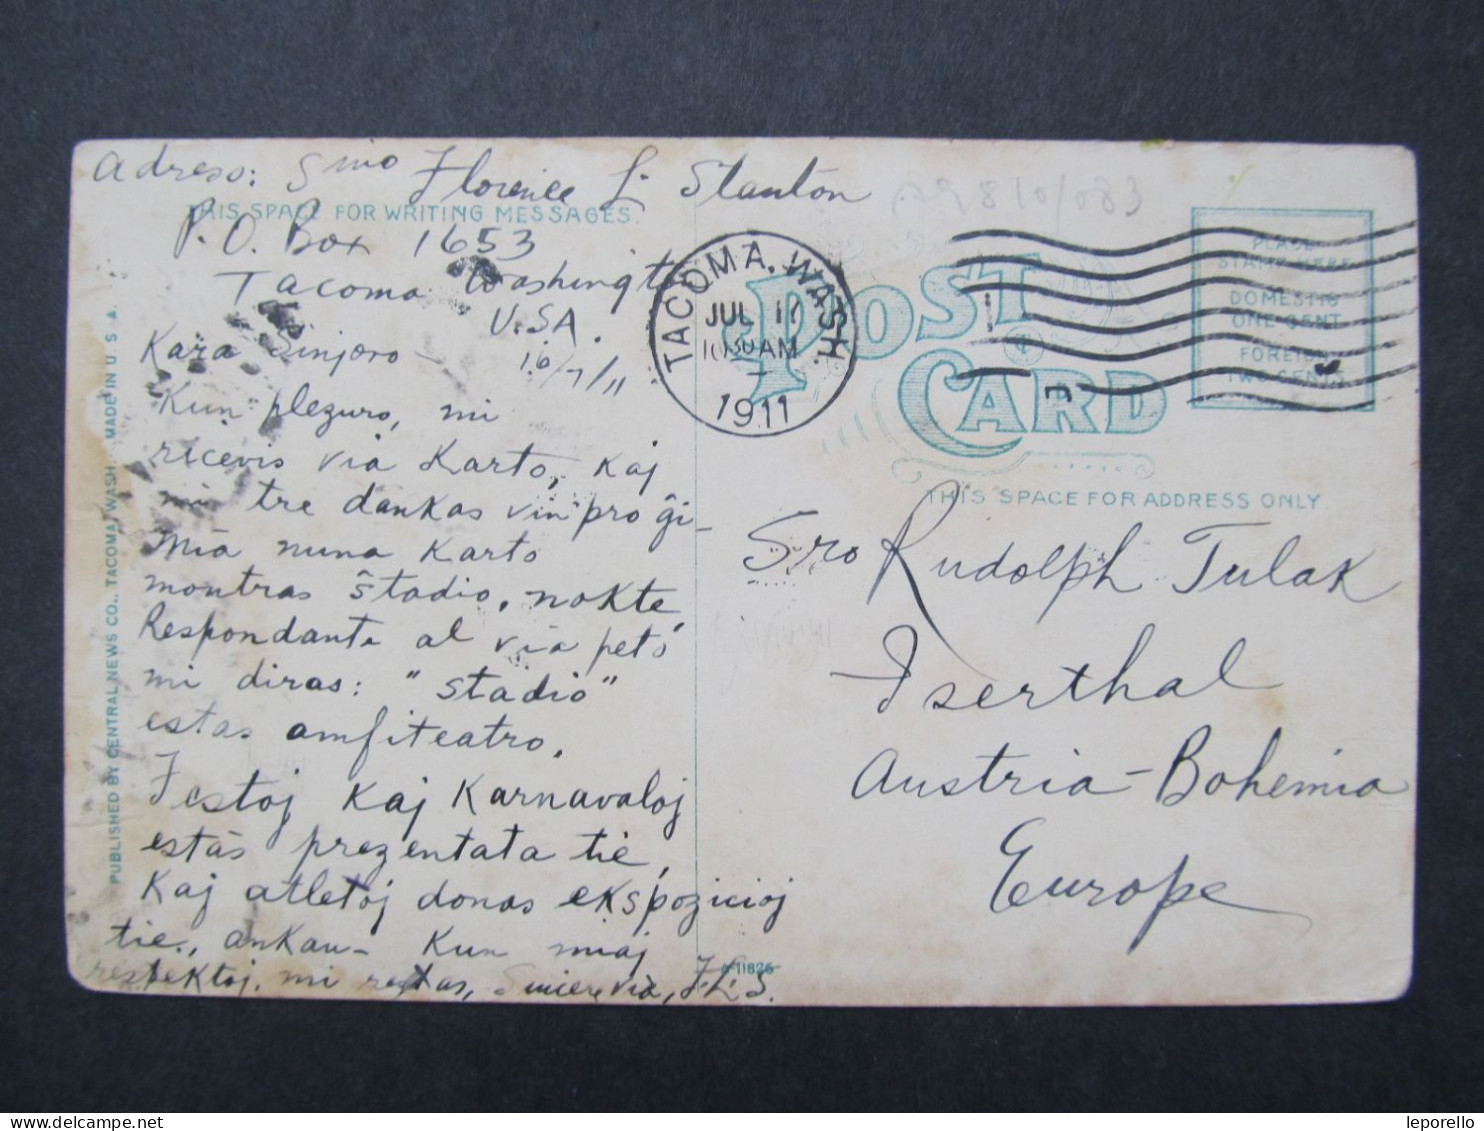 Adreso: Sino Florence L. Stanton
THIS SPACE FOR WRITING MESSAGES.
P.O. Box 1653
Tacoma Washington
U.S.A.
Kara Sinjoro — 16/7/11
Kun plezuro, mi
ricevis via Karto, kaj
mi tre dankas vin pro ĝi —
Mia nuna Karto
montras ŝtadio, nokte,
Respondante al via peto
mi diras: "stadio"
estas amfiteatro.
Festoj kaj Karnavaloj
estas prezentata tie,
Kaj atletoj donas ekspozicioj
tie, ankau — Kun miaj
respektoj, mi restas, Sincere via, F.L.S.
PUBLISHED BY CENTRAL NEWS CO., TACOMA, WASH. MADE IN U.S.A.
TACOMA, WASH.
JUL 17
10 30 AM
1911
POST CARD
PLACE
STAMP HERE
DOMESTIC
ONE CENT
FOREIGN
TWO CENTS
THIS SPACE FOR ADDRESS ONLY.
Sro Rudolph Tulak
Iserthal
Austria-Bohemia
Europe
A-11826
leporello